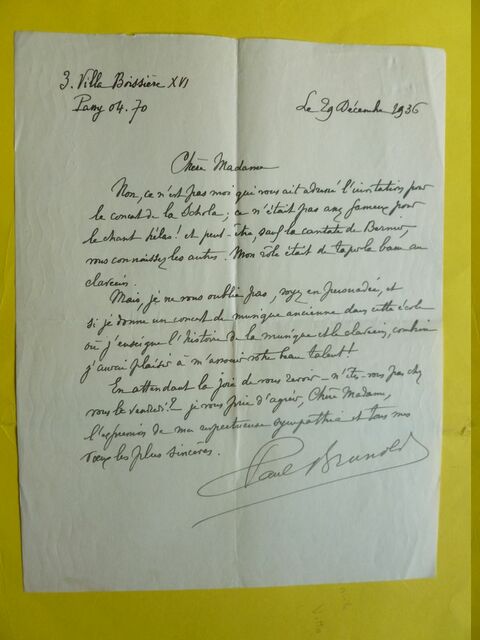 3. Villa Boissière XVI
Passy 04.70
Le 29 Décembre 1936
Chère Madame
Non, ce n'est pas moi qui vous ait adressé l'invitation pour
le concert de la Schola ; ce n'était pas assez fameux pour
le chant hélas ! et peut-être, sauf la cantate de Bernier,
vous connaissez les autres. Mon rôle était de taper la basse au
clavecin.
Mais, je ne vous oublie pas, soyez en persuadée, et
si je donne un concert de musique ancienne dans cette école
où j'enseigne l'histoire de la musique et le clavecin, combien
j'aurai plaisir à m'assurer votre beau talent !
En attendant la joie de vous revoir - n'êtes-vous pas chez
vous le vendredi ? je vous prie d'agréer, Chère Madame,
l'expression de ma respectueuse sympathie et tous mes
vœux les plus sincères.
Paul Brunold